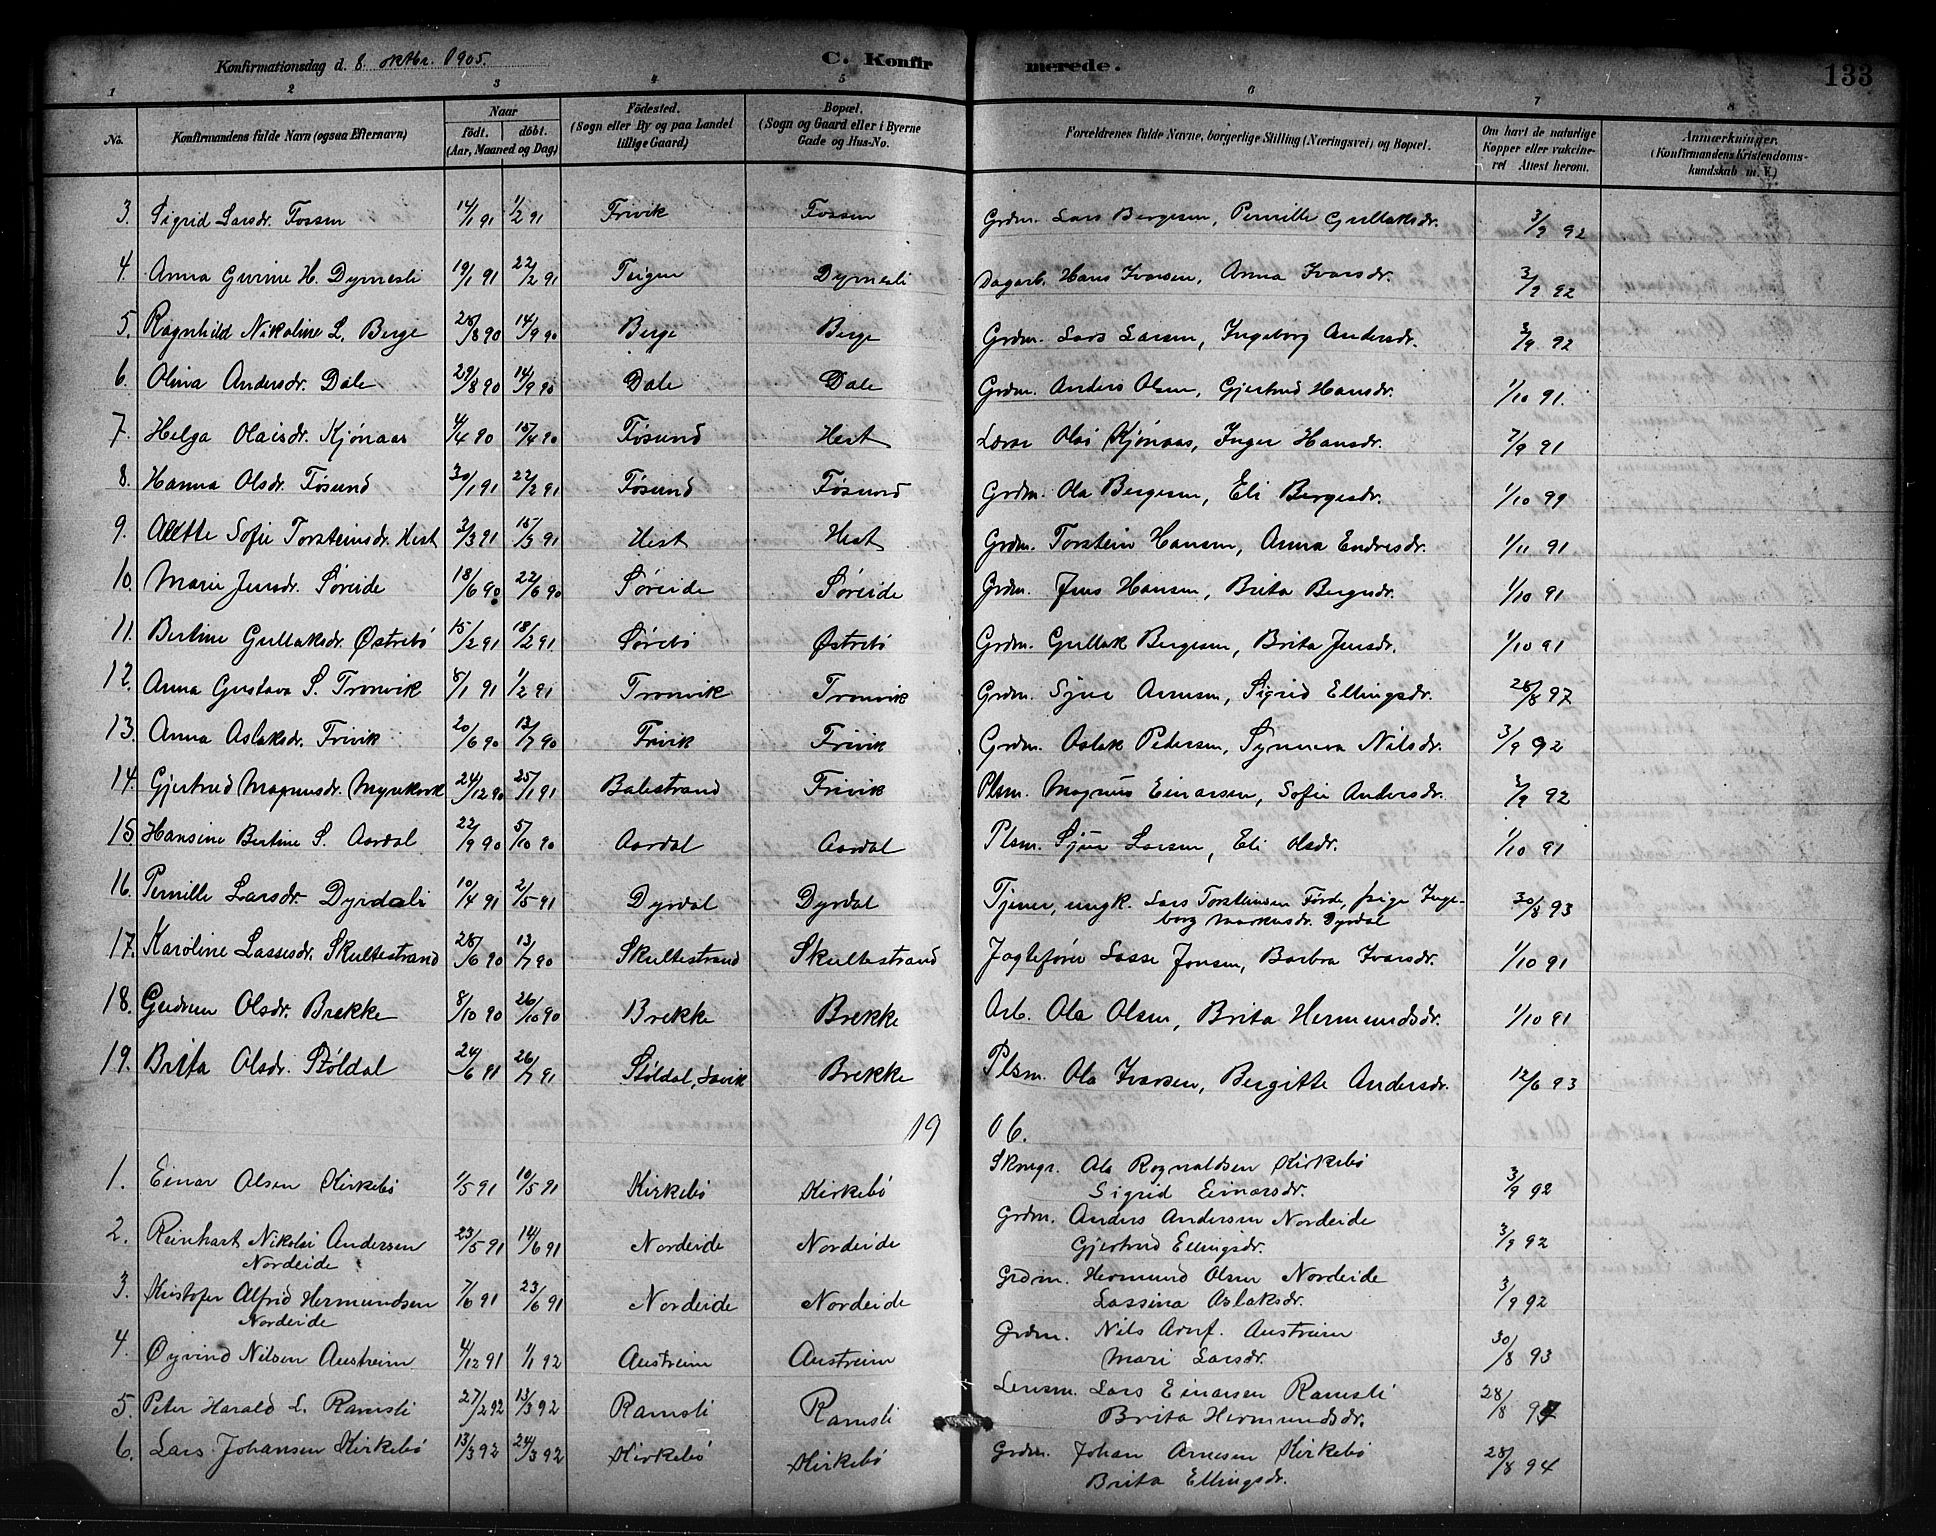 Konfirmationsdag d. 8. oktbr. 1905. C. Konfirmerede. 133
1 2 3 4 5 6 7 8
No. Konfirmandens fulde Navn (ogsaa Efternavn) Naar födt. döbt. (Aar, Maaned og Dag) Födested. (Sogn eller By og paa Landet tillige Gaard) Bopæl. (Sogn og Gaard eller i Byerne Gade og Hus-No. Forældrenes fulde Navne, borgerlige Stilling (Næringsvei) og Bopæl. Om havt de naturlige Kopper eller vakcineret Attest herom. Anmærkninger. (Konfirmandens Kristendomskundskab m. V.)
3. Sigrid Larsdr. Fossen 14/1 91 1/2 91 Frivik Fossen Grdm. Lars Bergesen, Pernille Gullaksdr. 3/9 92
4. Anna Gurine H. Dyrnesli 19/1 91 22/2 91 Teigen Dyrnesli Dagarb. Hans Ivarsen, Anna Ivarsdr. 3/9 92
5. Ragnhild Nikoline L. Berge 28/8 90 14/9 90 Berge Berge Grdm. Lars Larsen, Ingeborg Andersdr. 3/9 92
6. Olina Andersdr. Dale 29/8 90 14/9 90 Dale Dale Grdm. Anders Olsen, Gjertrud Hansdr. 1/10 91.
7. Helga Olaisdr. Kjönaas 4/4 90 15/4 90 Føsund Hest Lærer Olai Kjönaas, Inger Hansdr. 7/9 91
8. Hanna Olsdr. Føsund 30/1 91 22/2 91 Føsund Føsund Grdm. Ola Bergesen, Eli Bergesdr. 1/10 99
9. Alette Sofie Torsteinsdr. Hest 3/3 91 15/3 91 Hest Hest Grdm. Torstein Hansen, Anna Endresdr. 1/11 91
10. Marie Jensdr. Søreide 18/6 90 22/6 90 Søreide Søreide Grdm. Jens Hansen, Brita Bergesdr. 1/10 91
11. Bertine Gullaksdr. Østrebö 15/2 91 18/2 91 Sørebö Østrebö Grdm. Gullak Bergesen, Brita Jensdr. 1/10 91
12. Anna Gustava S. Tronvik 8/1 91 1/2 91 Tronvik Tronvik Grdm. Sjur Arnesen, Sigrid Ellingsdr. 28/8 97
13. Anna Aslaksdr. Frivik 20/6 90 13/7 90 Frivik Frivik Grdm. Aslak Pedersen, Synneva Nilsdr. 3/9 92
14. Gjertrud Magnusdr. 24/12 90 25/1 91 Balestrand Frivik Plsm. Magnus Einarsen, Sofie Andersdr. 3/9 92
15. Hansine Bertine S. Aardal 22/9 90 5/10 90 Aardal Aardal Plsm. Sjur Larsen, Eli Olsdr. 1/10 91
16. Pernille Larsdr. Dyrdal 10/4 91 2/5 91 Dyrdal Dyrdal Tjener, ungk. Lars Torsteinsen Förde, pige Inge-
borg Markusdr. Dyrdal 30/8 93
17. Karoline Lassesdr. Skultestrand 28/6 90 13/7 90 Skultestrand Skultestrand Jagtefører Lasse Jonsen, Barbra Ivarsdr. 1/10 91
18. Gudrun Olsdr. Brekke 8/10 90 26/10 90 Brekke Brekke Arb. Ola Olsen, Brita Hermundsdr. 1/10 91
19. Brita Olsdr. Støldal 24/6 91 26/7 91 Støldal, Lavik Brekke Plsm. Ola Ivarsen, Bergitte Andersdr. 12/6 93
19 06.
1. Einar Olsen Kirkebö 1/5 91 10/5 91 Kirkebö Kirkebö Skmgr. Ola Rognaldsen Kirkebö
Sigrid Einarsdr. 3/9 92
2. Reinhart Nikolai Andersen 23/5 91 14/6 91 Nordeide Nordeide Grdm. Anders Andersen Nordeide
Nordeide Gjertrud Ellingsdr. 3/9 92
3. Kristofer Alfred Hermundsen 7/6 91 23/6 91 Nordeide Nordeide Grdm. Hermund Olsen Nordeide
Nordeide Lassina Aslaksdr. 3/9 92
4. Øyvind Nilsen Austreim 4/12 91 1/1 92 Austreim Austreim Grdm. Nils Arnf. Austreim
Mari Larsdr. 30/8 93
5. Peter Harald L. Ramsli 27/2 92 13/3 92 Ramsli Ramsli Lensm. Lars Einarsen Ramsli
Brita Hermundsdr. 28/8
6. Lars Johansen Kirkebö 13/3 92 24/3 92 Kirkebö Kirkebö Grdm. Johan Arnesen Kirkebö
Brita Ellingsdr. 28/8 94